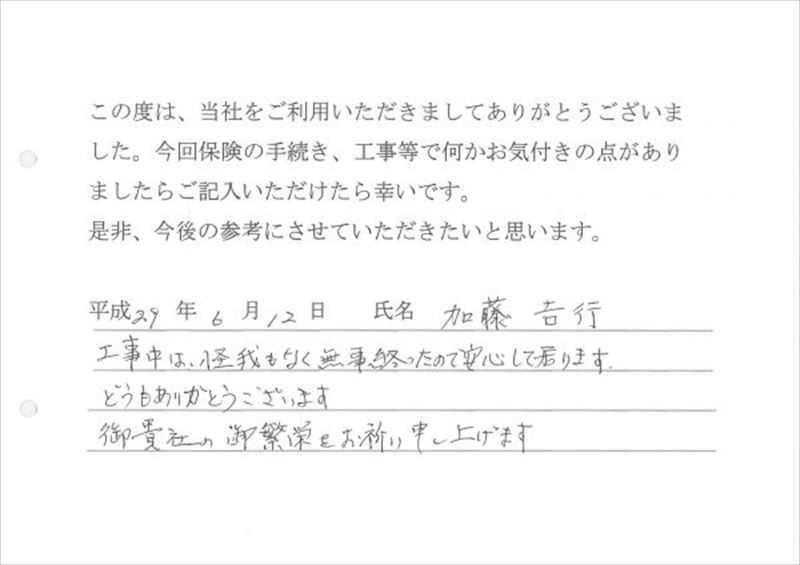 この度は、当社をご利用いただきましてありがとうございま
した。今回保険の手続き、工事等で何かお気付きの点があり
ましたらご記入いただけたら幸いです。
是非、今後の参考にさせていただきたいと思います。
平成29年6月12日 氏名 加藤吉行
工事中は、怪我もなく無事終ったので安心して居ります.
どうもありがとうございます
御貴社の御繁栄をお祈り申し上げます